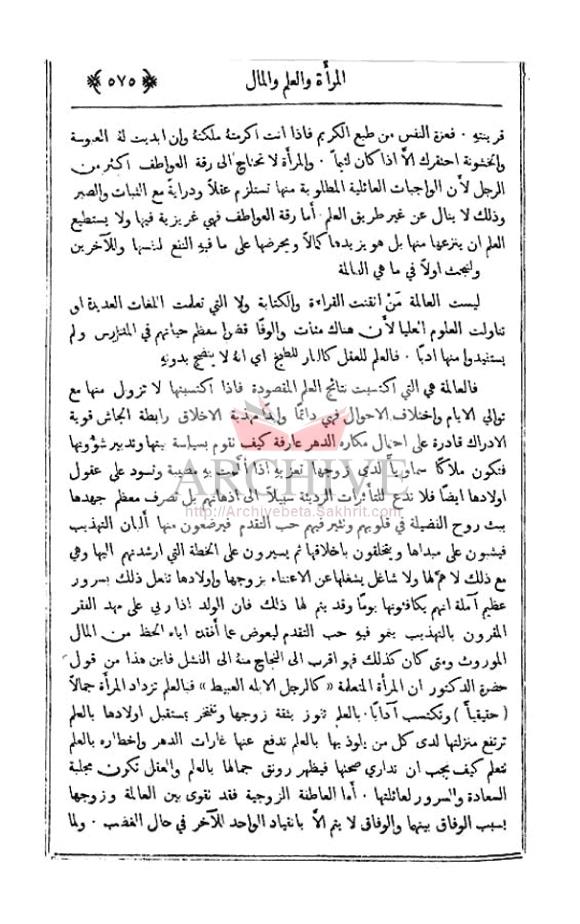 المرأة والعلم والمال ﴿ ٥٧٥ ﴾
قرينتهِ . فعزة النفس من طبع الكريم فاذا انت اكرمتهُ ملكتهُ وإن ابديت لهُ العبوسة
والخشونة احتقرك الاّ اذا كان لئيماً . والمرأة لا تحتاج الى رقة العواطف اكثر من
الرجل لأن الواجبات العائلية المطلوبة منها تستلزم عقلاً ودراية مع الثبات والصبر
وذلك لا ينال عن غير طريق العلم . أما رقة العواطف فهي غريزية فيها ولا يستطيع
العلم ان ينزعها منها بل هو يزيدها كمالاً ويحرضها على ما فيهِ النفع لنفسها وللآخرين
ولنبحث اولاً في ما هي العالمة
ليست العالمة مَنْ اتقنت القراءة والكتابة ولا التي تعلمت اللغات العديدة او
تناولت العلوم العليا لأن هناك مئات والوفًا قضوا معظم حياتهم في المدارس ولم
يستفيدوا منها ادبًا . فالعلم للعقل كالنار للطبخ اي انهُ لا ينضج بدونهِ
فالعالمة هي التي اكتسبت نتائج العلم المقصودة فاذا اكتسبتها لا تزول منها مع
توالي الايام واختلاف الاحوال فهي دائمًا وابدًا مهذبة الاخلاق رابطة الجاش قوية
الادراك قادرة على احتمال مكاره الدهر عارفة كيف تقوم بسياسة بيتها وتدبير شؤونها
فتكون ملاكًا سماوياً لدى زوجها تعزيهِ اذا ألمت بهِ مصيبة وتسود على عقول
اولادها ايضًا فلا تدع للتأثيرات الرديئة سبيلاً الى اذهانهم بل تصرف معظم جهدها
ببث روح الفضيلة في قلوبهم وتثير فيهم حب التقدم فيرضعون منها ألبان التهذيب
فيشبون على مبداها ويتخلقون باخلاقها ثم يسيرون على الخطة التي ارشدتهم اليها وهي
مع ذلك لا همّ لها ولا شاغل يشغلها عن الاعتناء بزوجها واولادها تفعل ذلك بسرور
عظيم آملة انهم يكافئونها يومًا وقد يتم لها ذلك فان الولد اذا ربي على مهد الفقر
المقرون بالتهذيب ينمو فيهِ حب التقدم ليعوض عما أفقدهُ اياه الحظ من المال
الموروث ومتى كان كذلك فهو اقرب الى النجاح منهُ الى الفشل فاين هذا من قول
حضرة الدكتور ان المرأة المتعلمة «كالرجل الابله العبيط» فبالعلم تزداد المرأة جمالاً
(حقيقياً) وتكتسب آدابًا . بالعلم تفوز بثقة زوجها وتفتخر بمستقبل اولادها بالعلم
ترتفع منزلتها لدى كل من يلوذ بها بالعلم تدفع عنها غارات الدهر واخطاره بالعلم
تتعلم كيف يجب ان تداري صحتها فيظهر رونق جمالها بالعلم والعقل تكون مجلبة
السعادة والسرور لعائلتها . أما العاطفة الزوجية فقد تقوى بين العالمة وزوجها
بسبب الوفاق بينها والوفاق لا يتم الاّ بانقياد الواحد للآخر في حال الغضب . ولما
ARCHIVE
http://Archivebeta.Sakhrit.com